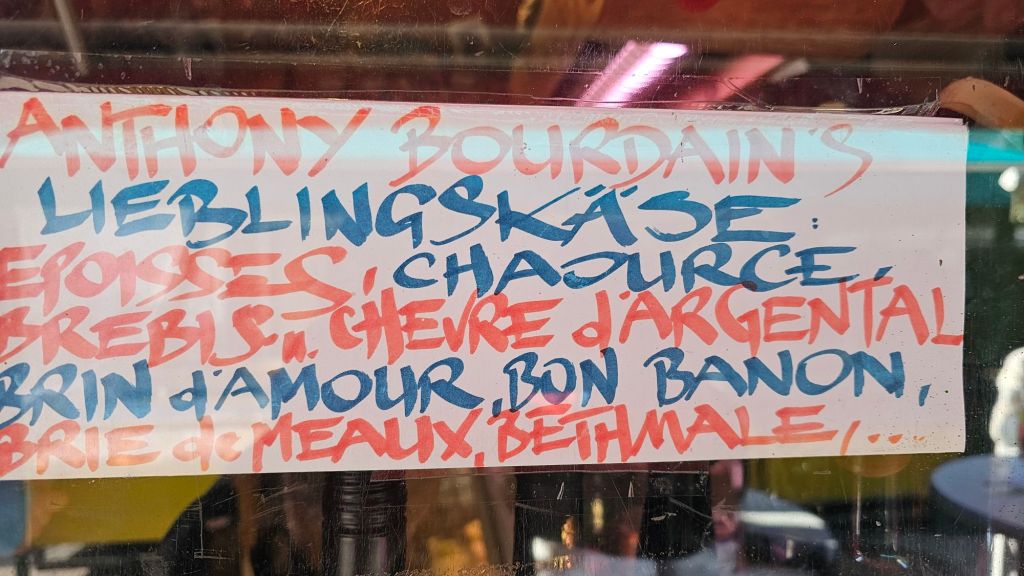 ANTHONY BOURDAIN'S
LIEBLINGSKÄSE:
EPOISSES, CHAOURCE,
BREBIS- u. CHEVRE d'ARGENTAL
BRIN d'AMOUR, BON BANON,
BRIE de MEAUX, BETHMALE, ...